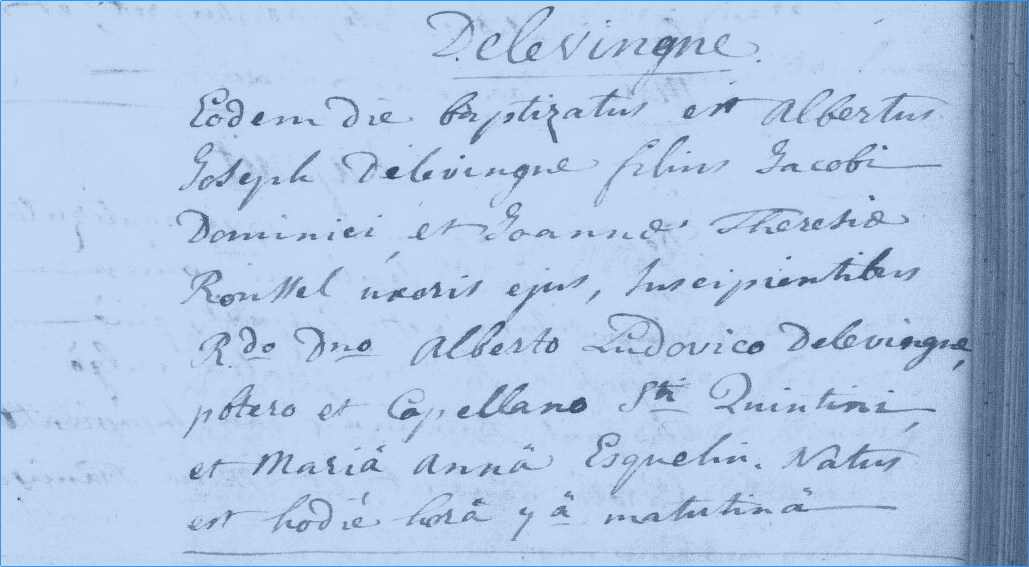 Delevingne.
Eodem die baptizatus est Albertus
Joseph Delevingne filius Jacobi
Dominici et Joannæ Theresiæ
Roussel uxoris ejus, suscipientibus
R.do Dno Alberto Ludovico Delevingne,
pbtero et Capellano Sti Quintini,
et Mariâ Annâ Esquelin. Natus
est hodié horâ yâ matutinâ